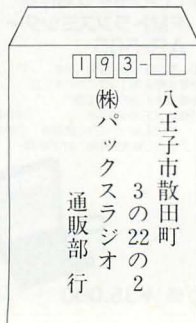 193-□□
八王子市散田町
3の22の2
㈱パックスラジオ
通販部 行